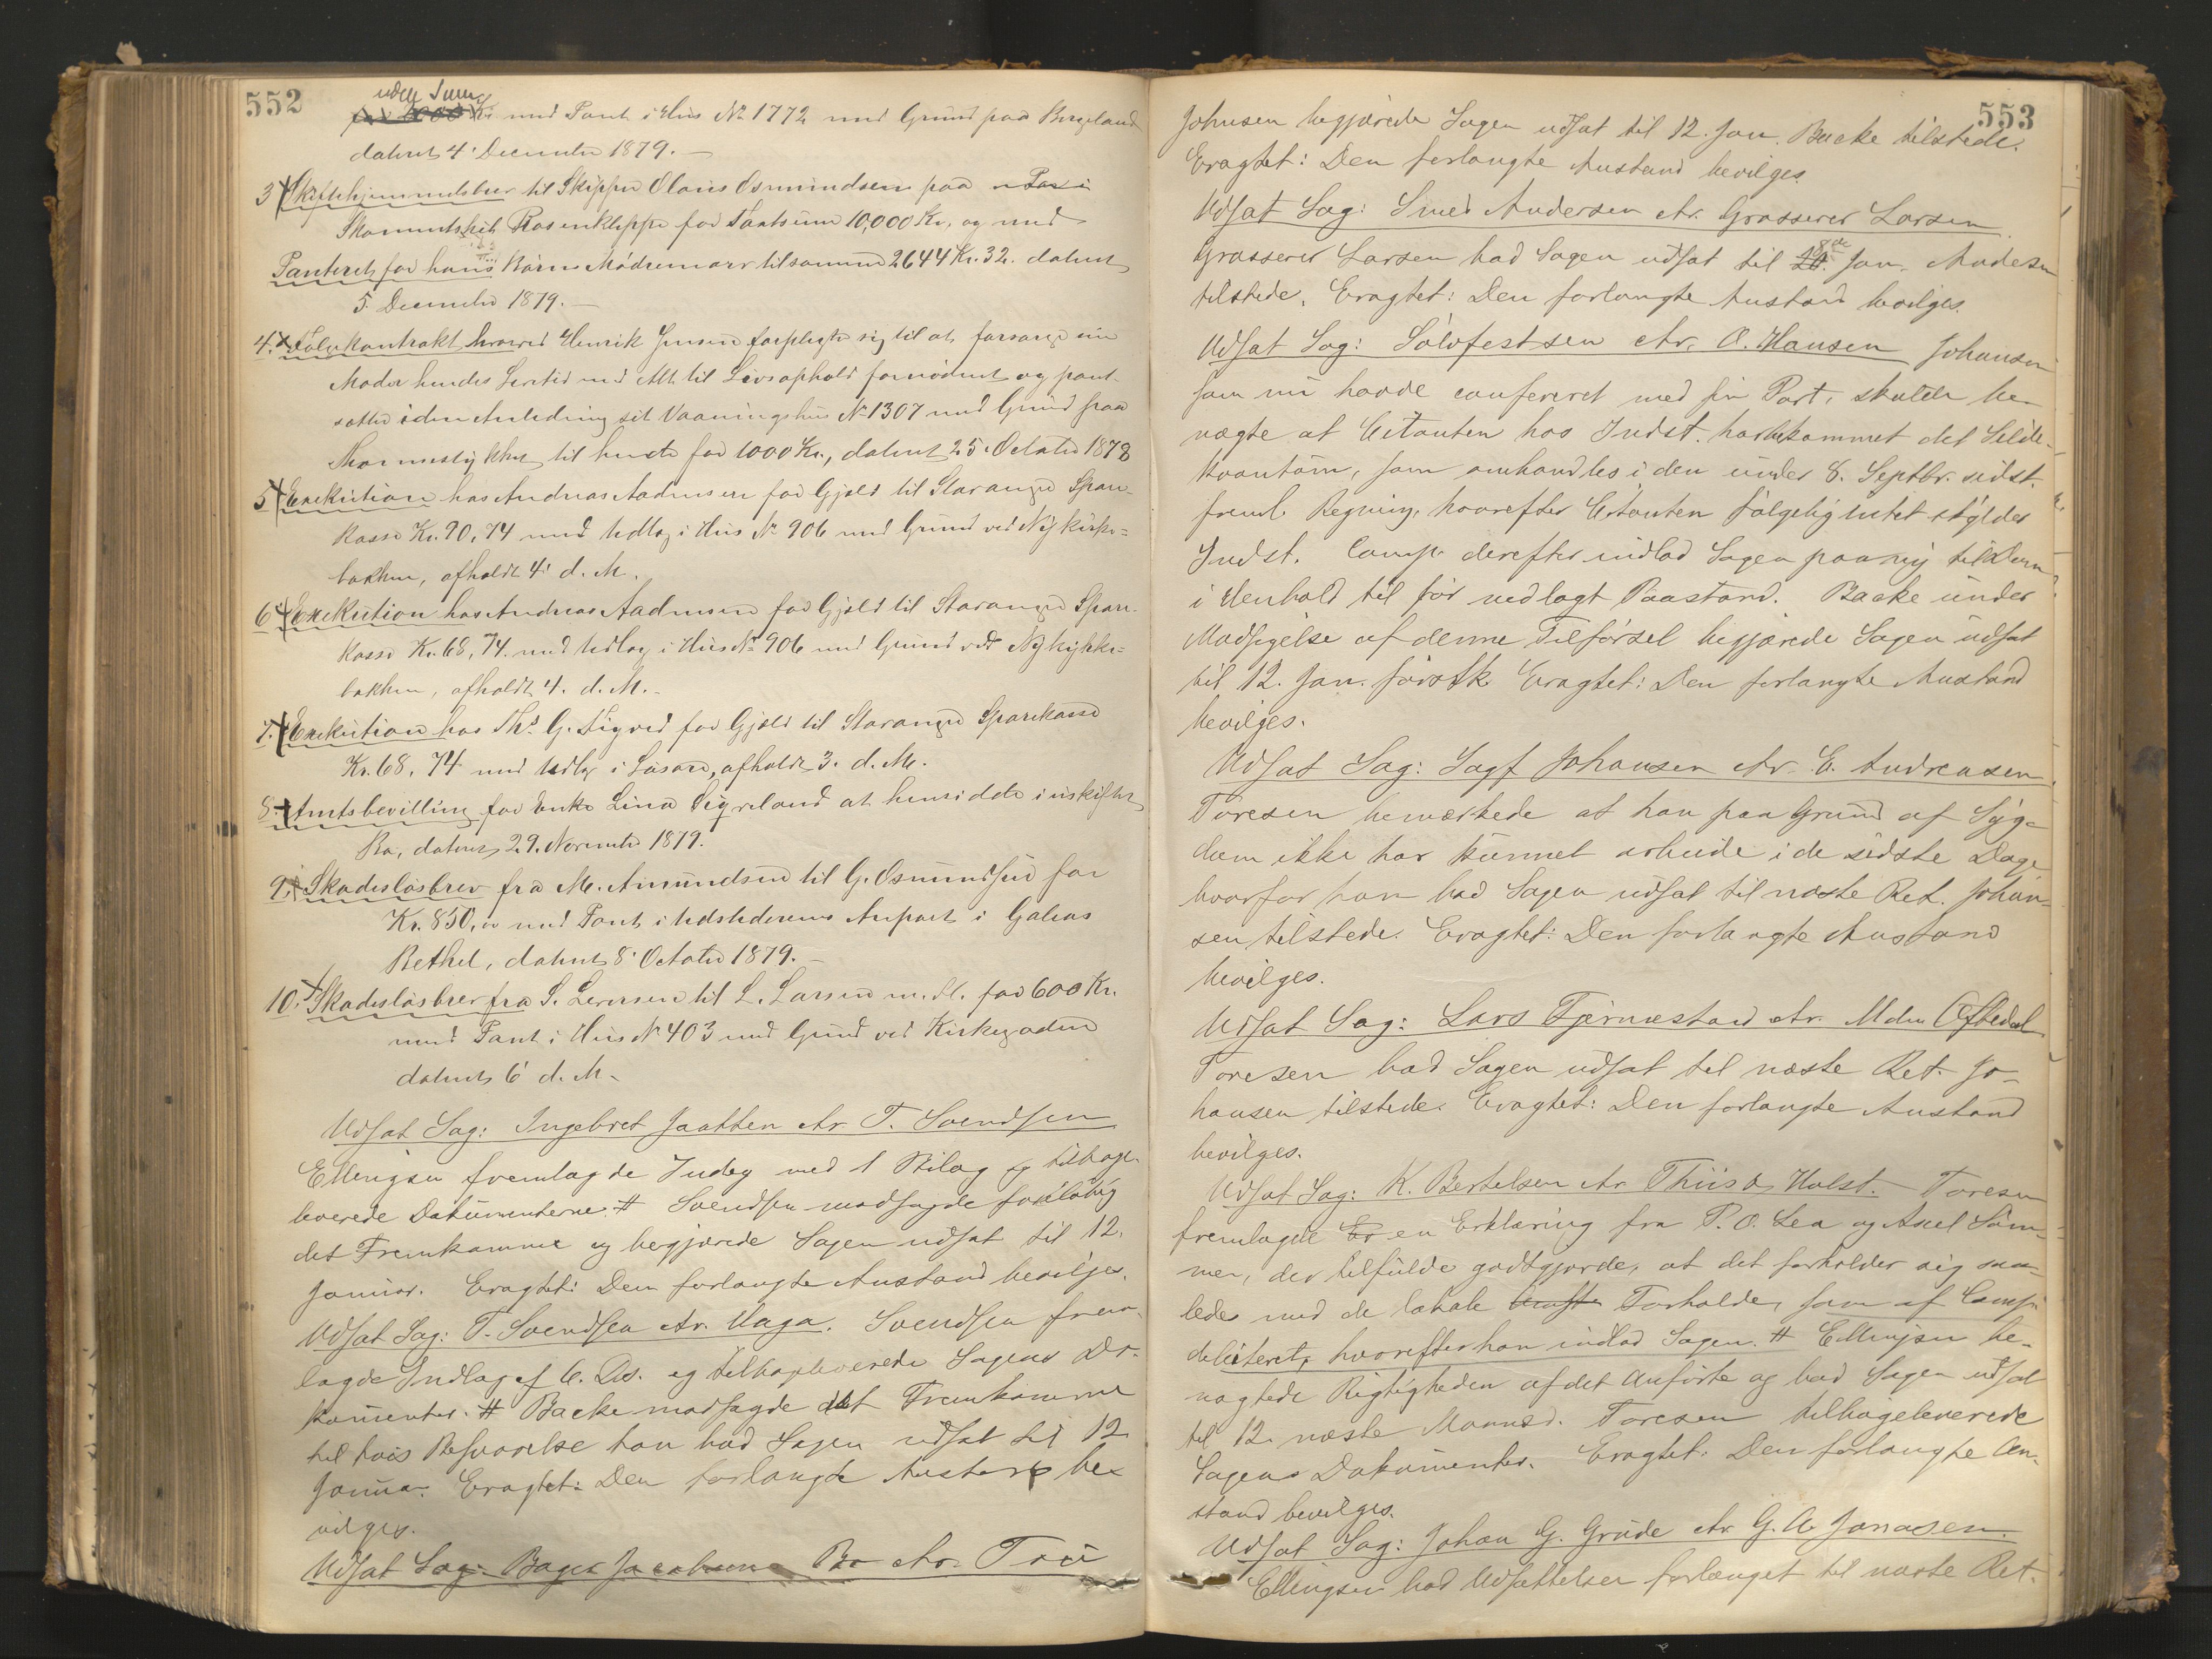 552
uden Sum
for 2000 Kr. med Pant i Hus No 1772 med Grund paa Bergeland
dateret 4' December 1879.
3 Skiftehjemmelsbrev til Skipper Olaus Osmundsen paa
Rosenklippe for Taxtsum 10,000 Kr. og med
Panteret for hans Børns Mødrenearv tilsammen 2644 Kr. 32. dateret
5 December 1879.
4. Følgekontrakt hvorved Henrik Jensen forpligter sig til at forsørge sin
Moder hendes Levetid med Alt til Livsophold fornødent og pant-
sætter i den Anledning sit Vaaningshus No 1307 med Grund paa
til hende for 1000 Kr., dateret 25. October 1878
5 Exekution hos Andreas Aadnesen for Gjæld til Stavanger Spare-
kasse Kr. 90,74 med Udlæg i Hus No 906 med Grund ved Nykirke-
bakken, afholdt 4' d. M.
6 Exekution hos Andreas Aadnesen for Gjæld til Stavanger Spare-
kasse Kr. 68,74. med Udlæg i Hus No 906 med Grund ved Nykirke-
bakken, afholdt 4. d. M.
7. Exekution hos Ths. G. Sigved for Gjæld til Stavanger Sparekasse
Kr. 68,74 med Udlæg i Løsøre, afholdt 3. d. M.
8. Amtsbevilling for Enke Lina Sigveland at hensidde i uskiftet
Bo, dateret 29. November 1879.
9. Skadesløsbrev fra M. Amundsen til G. Osmundsen for
Kr. 850, med Pant i Udstederens Anpart i Galeas
Bethel, dateret 8' October 1879.
10. Skadesløsbrev fra S. Seversen til L. Larsen m. fl. for 600 Kr.
med Pant i Hus No 403 med Grund ved Kirkegaden
dateret 6' d. M.
Udsat Sag: Ingebret Jaatten ctr. T. Svendsen
Ellingsen fremlagde Indlæg med 1 Bilag og tilbage-
leverede Dokumenterne. # Svendsen modsagde foreløbig
det Fremkomme og begjærede Sagen udsat til 12.
Januar. Eragtet: Den forlangte Anstand bevilges.
Udsat Sag: T. Svendsen ctr. Haga. Svendsen frem-
lagde Indlæg af 6. Ds. og tilbageleverede Sagens Do-
kumenter. # Backe modsagde det Fremkomne
til hvis Besvarelse han bad Sagen udsat til 12
Januar. Eragtet: Den forlangte Anstand be-
vilges.
Udsat Sag: Bager Jacobsens Bo ctr. Tru
553
Johnsen begjærede Sagen udsat til 12. Jan. Backe tilstede.
Eragtet: Den forlangte Anstand bevilges.
Udsat Sag: Smed Andersen ctr. Grosserer Larsen
Grosserer Larsen bad Sagen udsat til 20. 8de Jan. Andersen
tilstede. Eragtet: Den forlangte Anstand bevilges.
Udsat Sag: Sølvfestsen ctr. O. Hansen Johansen
som nu havde confereret med sin Part, skulde be-
nægte at Citanten hos Indst. har bekommet det Silde-
kvantum, som omhandles i den under 8. Septbr. sidst.
freml. Regning, hvorefter Citanten følgelig intet skylder
Indst. Comp. derefter indlod Sagen paany til Dom
i Henhold til før nedlagt Paastand. Backe under
Modsigelse af denne Tilførsel begjærede Sagen udsat
til 12. Jan. førstk. Eragtet: Den forlangte Anstand
bevilges.
Udsat Sag: Sagf Johansen ctr. E. Andreasen
Toresen bemærkede at han paa Grund af Syg-
dom ikke har kunnet arbeide i de sidste Dage
hvorfor han bad Sagen udsat til næste Ret. Johan-
sen tilstede. Eragtet: Den forlangte Anstand
bevilges.
Udsat Sag: Lars Tjernestad ctr. Mdm Oftedal
Toresen bad Sagen udsat til næste Ret. Jo-
hansen tilstede. Eragtet: Den forlangte Anstand
bevilges.
Udsat Sag: K. Bertelsen ctr Thiis & Holst. Toresen
fremlagde Er en Erklæring fra P. O. Lea og Axel Søm-
me, der tilfulde godtgjorde, at det forholder sig saa-
ledes med de lokale Forholde, som af Comp.
deduceret, hvorefter han indlod Sagen. # Ellingsen be-
nægtede Rigtigheden af det Anførte og bad Sagen udsat
til 12. næste Maaned. Toresen tilbageleverede
Sagens Dokumenter. Eragtet: Den forlangte An-
stand bevilges.
Udsat Sag: Johan G. Grude ctr G. A. Jonasen.
Ellingsen bad Udsættelsen forlænget til næste Ret.